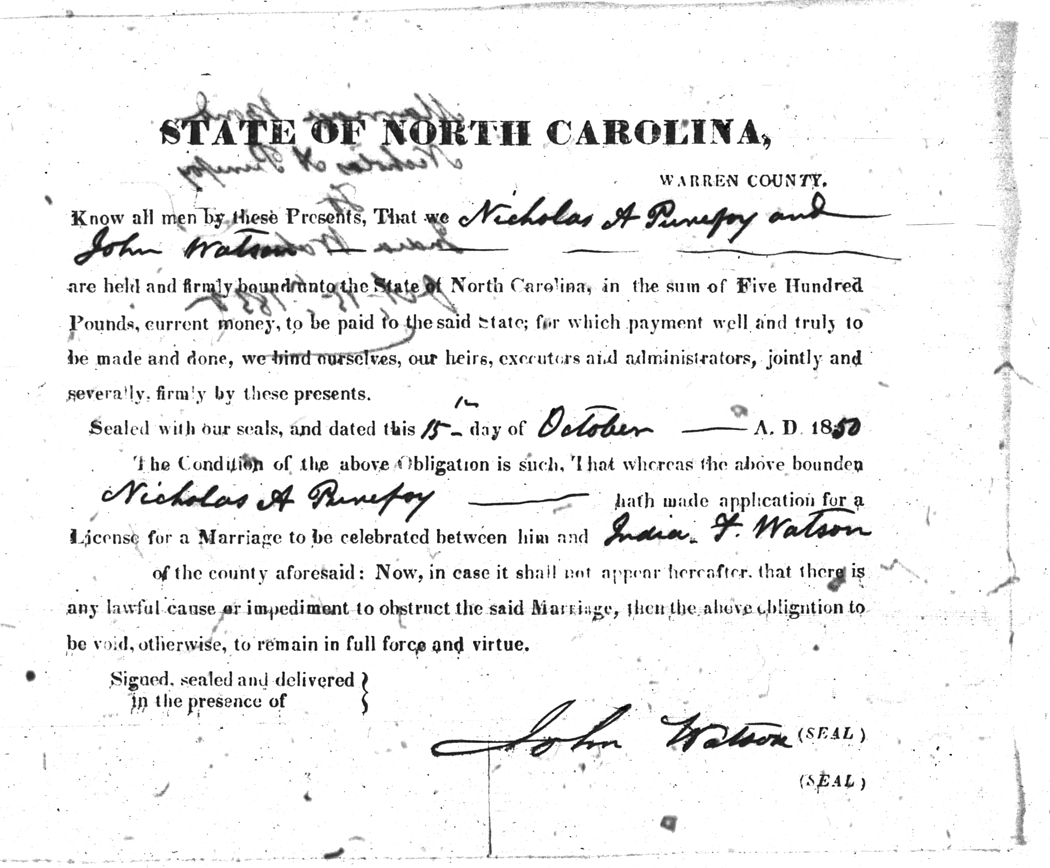 STATE OF NORTH CAROLINA,
WARREN COUNTY.
Know all men by these Presents, That we Nicholas A Purefoy and
John Watson
are held and firmly bound unto the State of North Carolina, in the sum of Five Hundred
Pounds, current money, to be paid to the said State; for which payment well and truly to
be made and done, we bind ourselves, our heirs, executors and administrators, jointly and
severally, firmly by these presents.
Sealed with our seals, and dated this 15th day of October A. D. 1850
The Condition of the above Obligation is such, That whereas the above bounden
Nicholas A Purefoy hath made application for a
License for a Marriage to be celebrated between him and India. F. Watson
of the county aforesaid: Now, in case it shall not appear hereafter, that there is
any lawful cause or impediment to obstruct the said Marriage, then the above obligation to
be void, otherwise, to remain in full force and virtue.
Signed, sealed and delivered
in the presence of
John Watson (SEAL)
(SEAL)